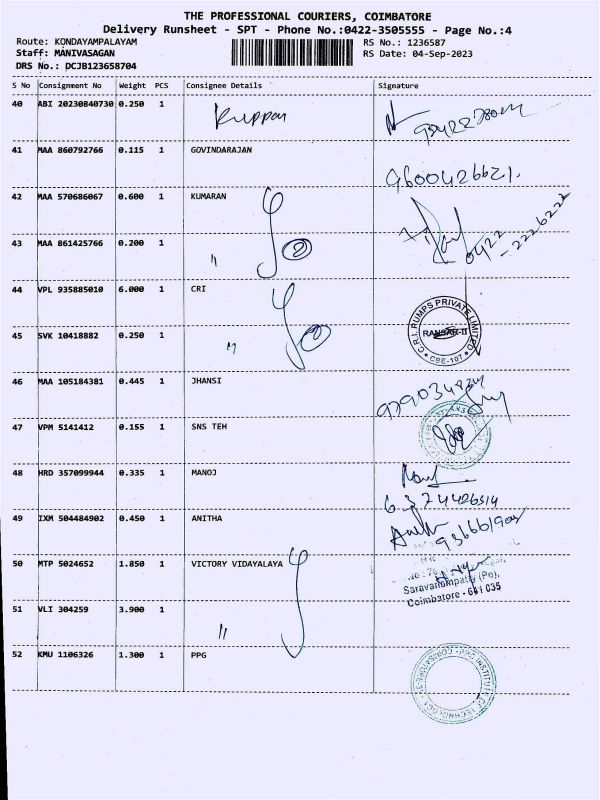 THE PROFESSIONAL COURIERS, COIMBATORE
Delivery Runsheet - SPT - Phone No.:0422-3505555 - Page No.:4
Route: KONDAYAMPALAYAM RS No.: 1236587
Staff: MANIVASAGAN RS Date: 04-Sep-2023
DRS No.: DCJB123658704
S No Consignment No Weight PCS Consignee Details Signature
40 ABI 20230840730 0.250 1 Kuppan
41 MAA 860792766 0.115 1 GOVINDARAJAN 9600426621.
42 MAA 570686067 0.600 1 KUMARAN
0422
- 2226222
43 MAA 861425766 0.200 1 " 2
44 VPL 935885010 6.000 1 CRI
C.R.I. PUMPS PRIVATE LIMITED
RANSAR-II
CBE-107
45 SVK 10418882 0.250 1 "
46 MAA 105184381 0.445 1 JHANSI
47 VPM 5141412 0.155 1 SNS TEH
48 HRD 357099944 0.335 1 MANOJ
6374426514
49 IXM 504484902 0.450 1 ANITHA
50 MTP 5024652 1.850 1 VICTORY VIDAYALAYA
Saravanampatty (Po),
Coimbatore - 641 035
51 VLI 304259 3.900 1 "
52 KMU 1106326 1.300 1 PPG
PPG INSTITUTE OF TECHNOLOGY